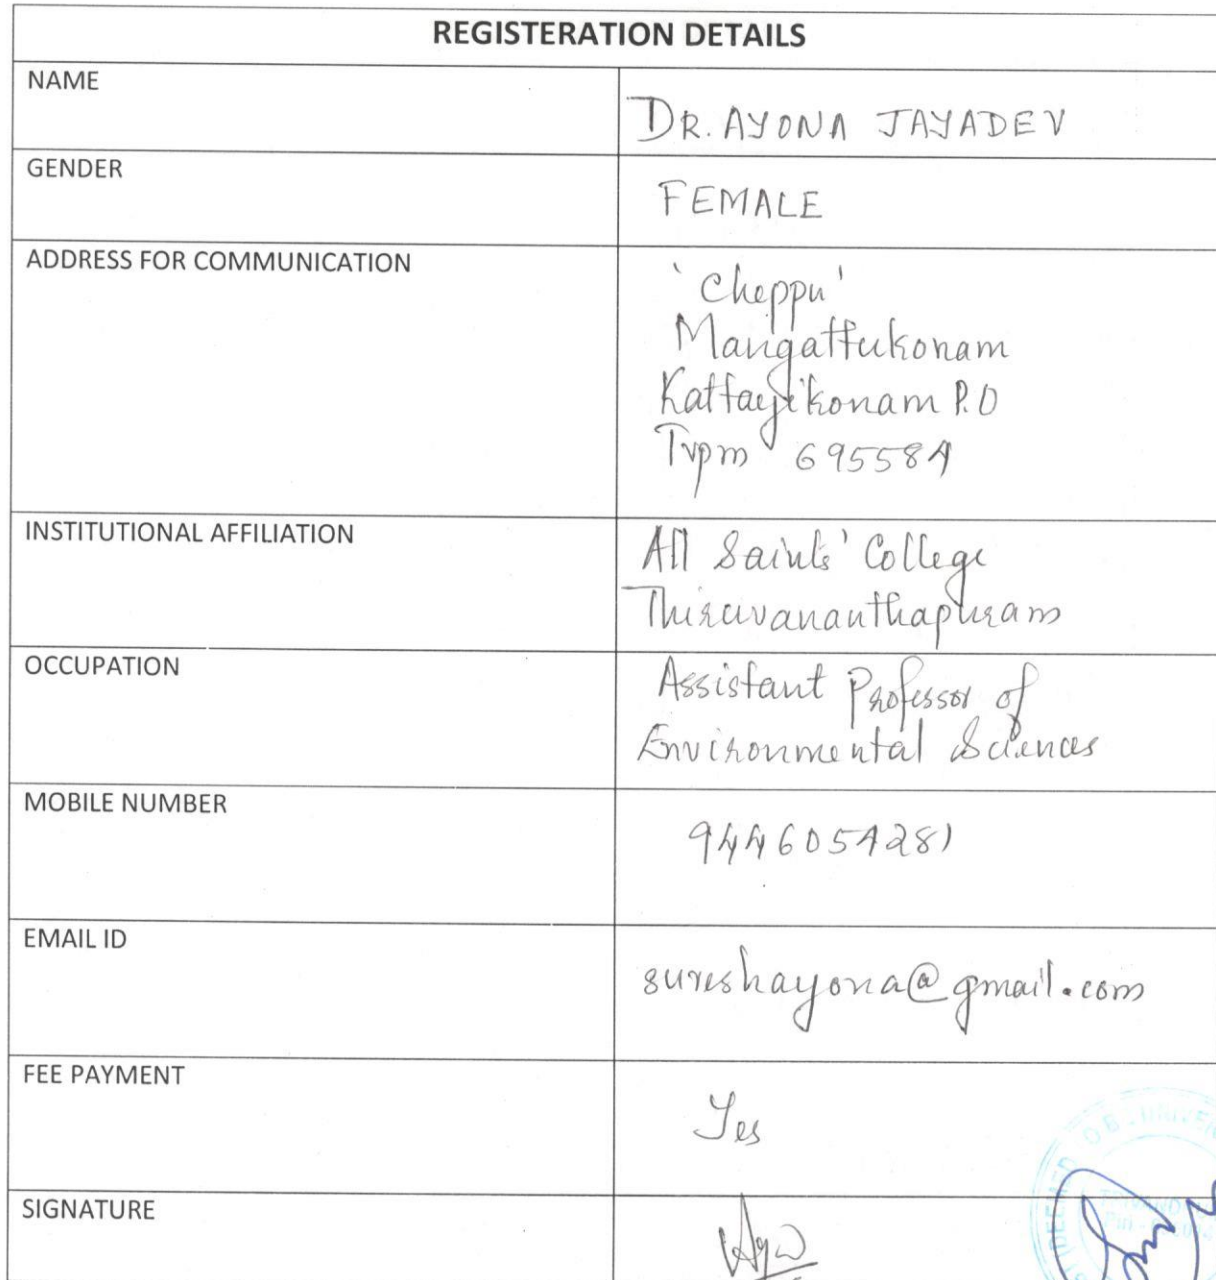 REGISTERATION DETAILS
NAME
DR. AYONA JAYADEV
GENDER
FEMALE
ADDRESS FOR COMMUNICATION
'Cheppu'
Mangattukonam
Kattayikonam P.O
Tvpm 695584
INSTITUTIONAL AFFILIATION
All Saints' College
Thiruvananthapuram
OCCUPATION
Assistant Professor of
Environmental Sciences
MOBILE NUMBER
9446054281
EMAIL ID
sureshayona@gmail.com
FEE PAYMENT
Yes
SIGNATURE
DEEMED